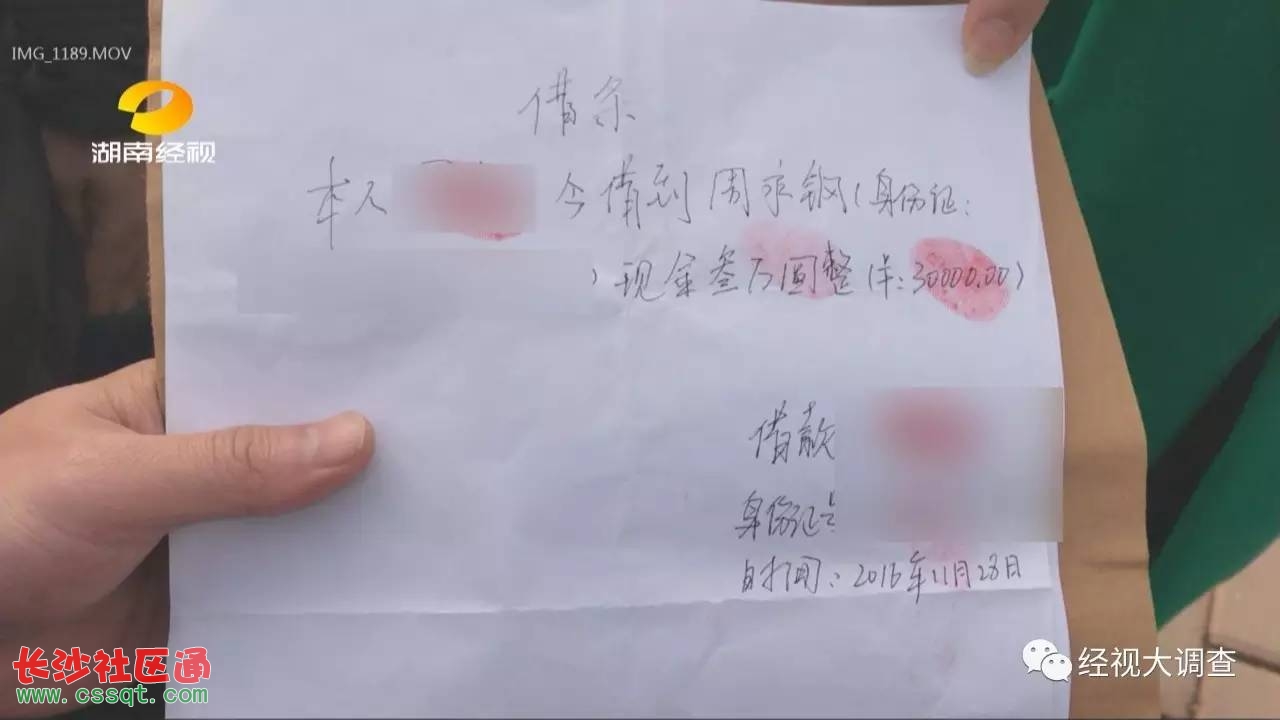 IMG_1189.MOV
湖南经视
借条
本人 今借到周永钢(身份证:
)现金叁万圆整(羊:30000.00)
借款
身份证号
时间:2016年11月28日
长沙社区通
www.cssqt.com
经视大调查